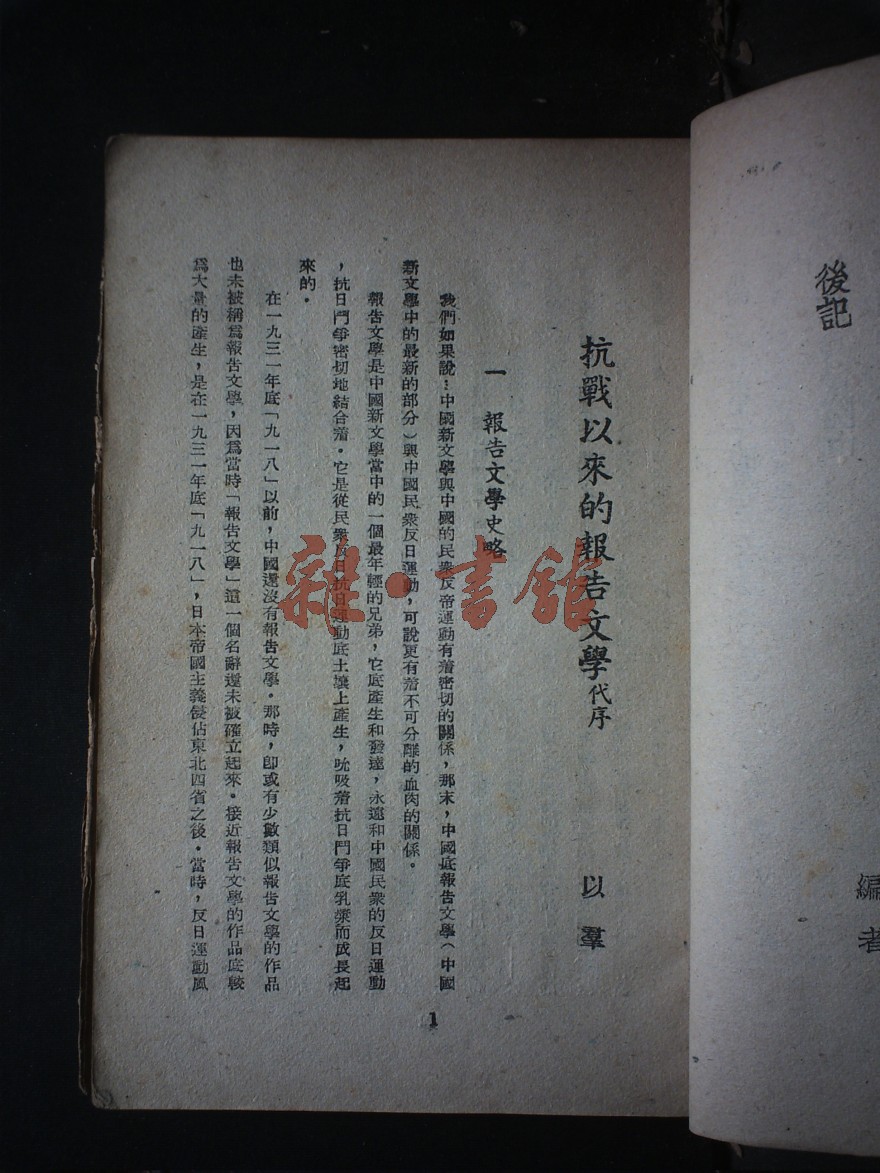 後記
編者
抗戰以來的報告文學代序
以羣
一 報告文學史略
我們如果說:中國新文學與中國的民衆反帝運動有着密切的關係,那末,中國底報告文學(中國
新文學中的最新的部分)與中國民衆反日運動,可說更有着不可分離的血肉的關係。
報告文學是中國新文學當中的一個最年輕的兄弟,它底產生和發達,永遠和中國民衆的反日運動
,抗日鬥爭密切地結合着。它是從民衆反日抗日運動底土壤上產生,吮吸着抗日鬥爭底乳漿而成長起
來的。
在一九三一年底「九一八」以前,中國還沒有報告文學。那時,卽或有少數類似報告文學的作品
也未被稱爲報告文學,因爲當時「報告文學」這一個名辭還未被確立起來。接近報告文學的作品底較
爲大量的產生,是在一九三一年底「九一八」,日本帝國主義侵佔東北四省之後。當時,反日運動風
1
雜·書館